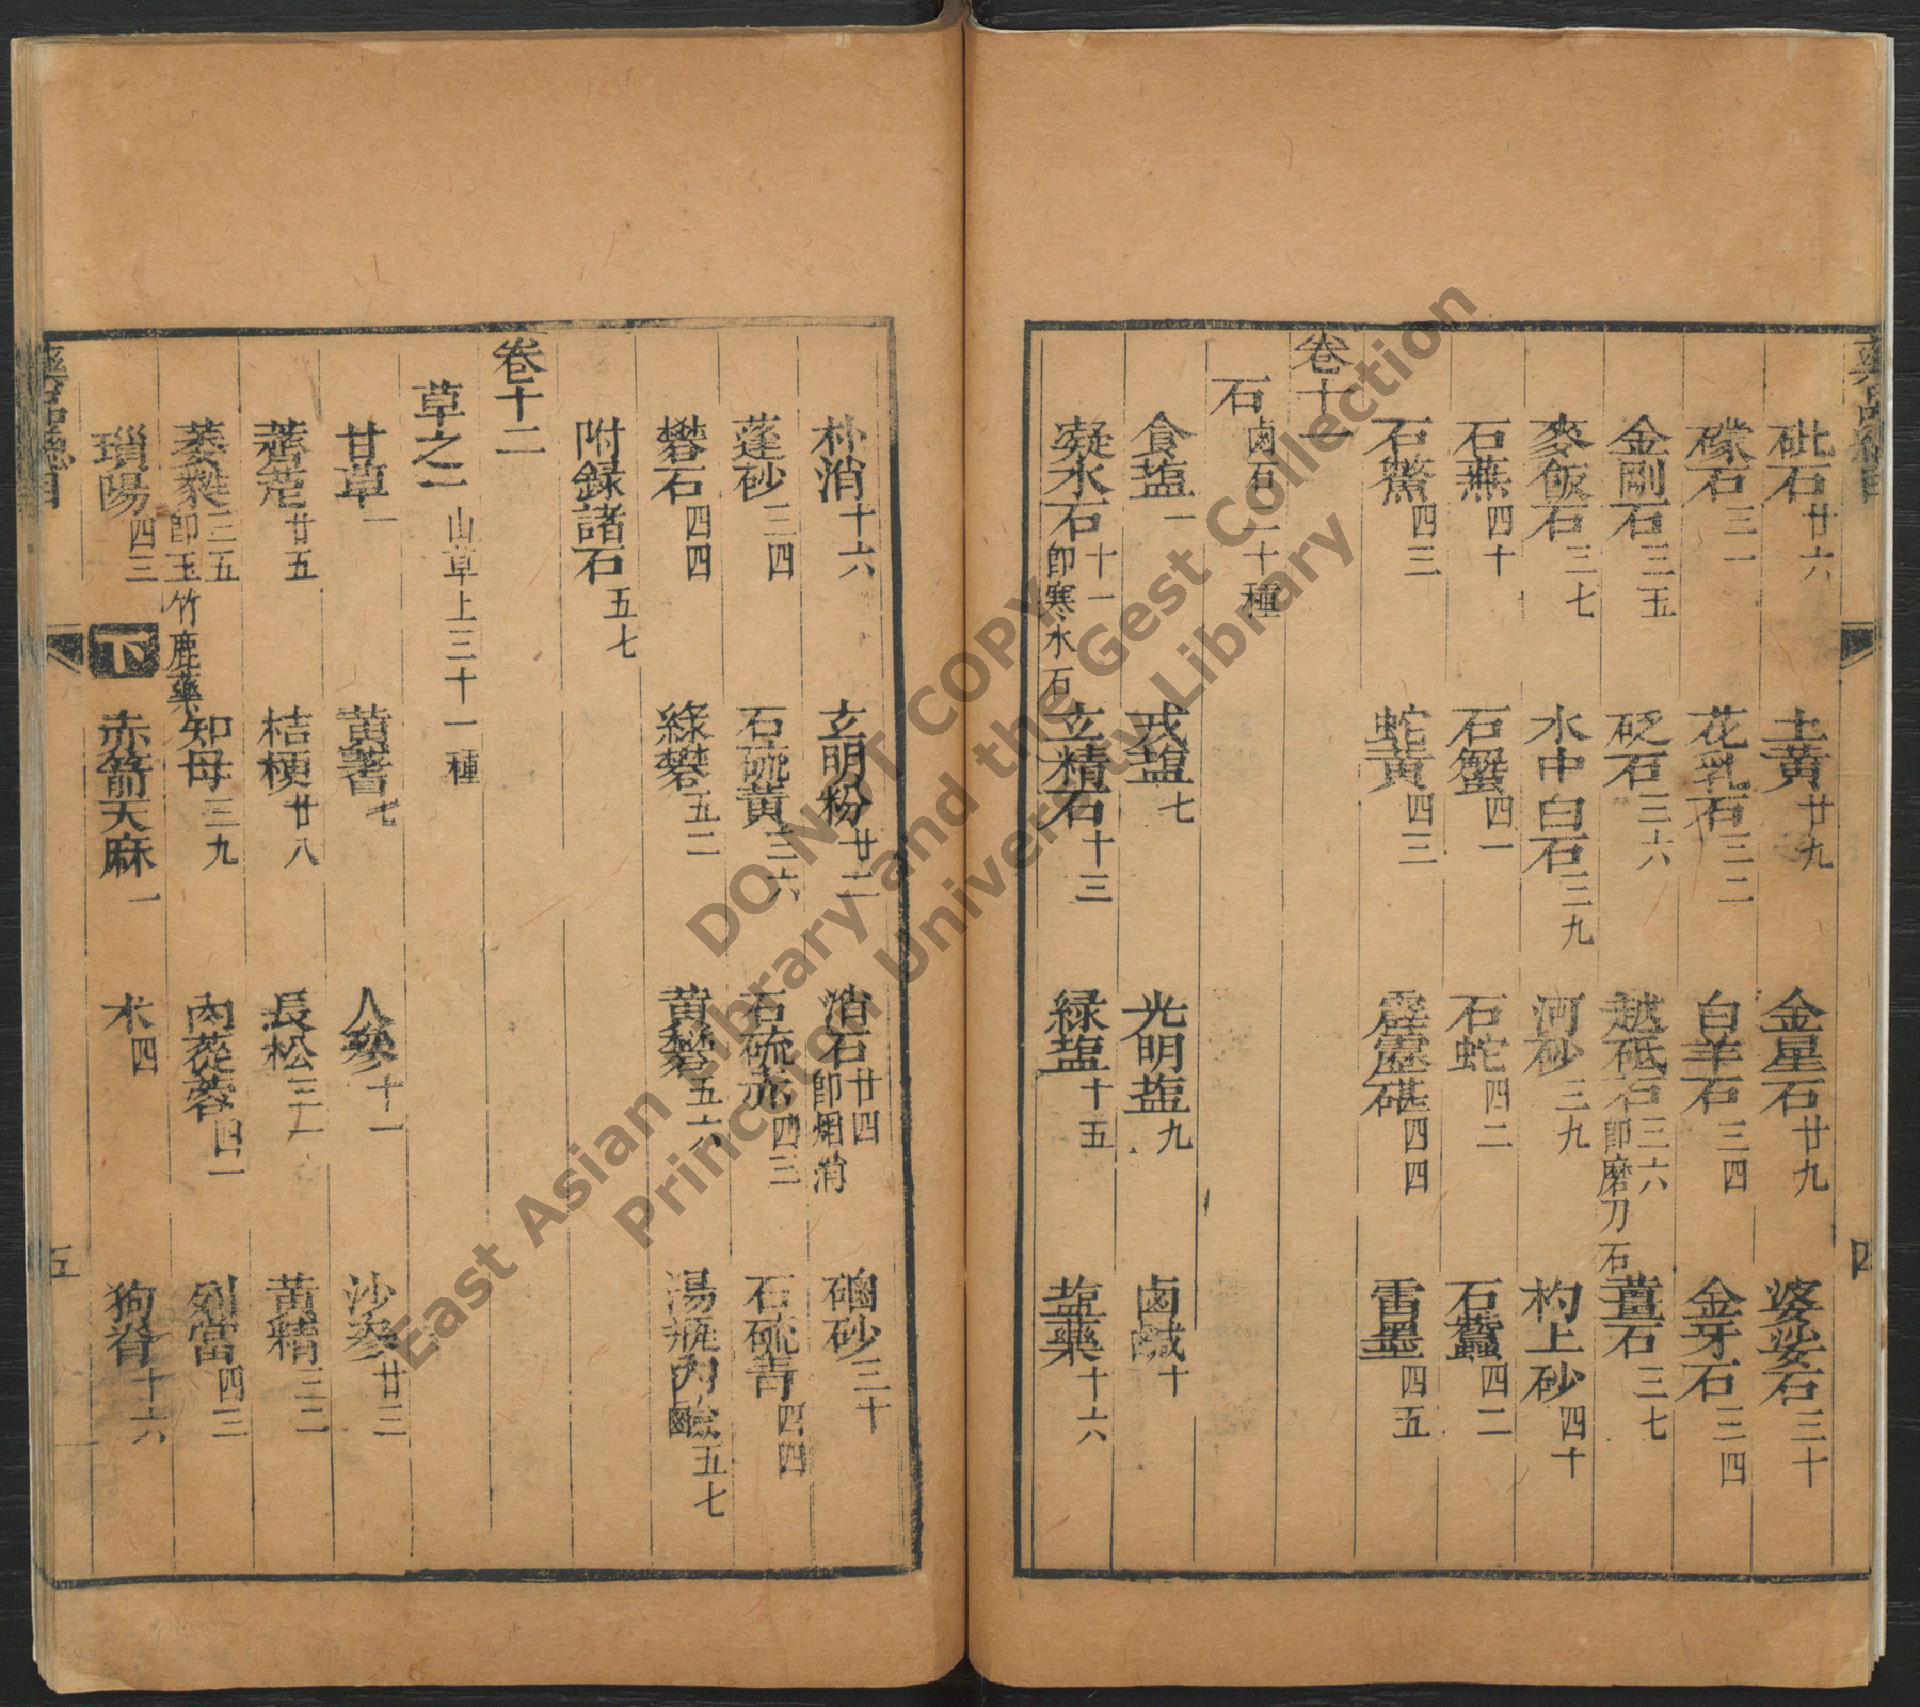 砒石廿六 土黃廿九 金星石廿九 婆娑石三十
礞石三一 花乳石三二 白羊石三四 金牙石三四
金剛石三五 砭石三六 越砥石三六即磨刀石 薑石三七
麥飯石三七 水中白石三九 河砂三九 杓上砂四十
石燕四十 石蟹四一 石蛇四二 石蠶四二
石鱉四三 蛇黃四三 霹靂碪四四 雷墨四五
卷十一
石 鹵石二十種
食盐一 戎盐七 光明盐九 鹵鹹十
凝水石十一即寒水石 玄精石十三 緑盐十五 盐藥十六
朴消十六 玄明粉廿二 消石廿四即焰消 硇砂三十
蓬砂三四 石硫黃三六 石硫赤四三 石硫青四四
礬石四四 綠礬五二 黄礬五六 湯瓶內鹻五七
附録諸石五七
卷十二
草之一 山草上三十一種
甘草一 黄耆七 人參十一 沙參廿三
薺苨廿五 桔梗廿八 長松三一 黄精三二
萎蕤三五即玉竹鹿藥 知母三九 肉蓯蓉四一 列當四三
瑣陽四三 下 赤箭天麻一 朮四 狗脊十六
藥品總目
五
DO NOT COPY
East Asian Library and the Gest Collection
Princeton University Library